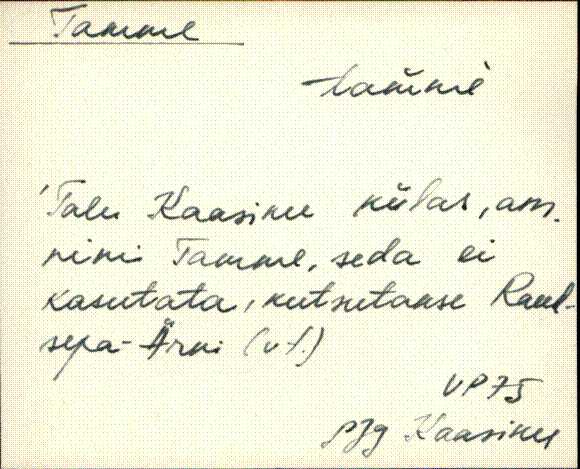 Tamme
tam̆mè
Talu Kaasiku külas, am.
nimi Tamme, seda ei
kasutata, kutsutakse Raud-
sepa-Ärni (vt.)
VP75
pjg Kaasiku